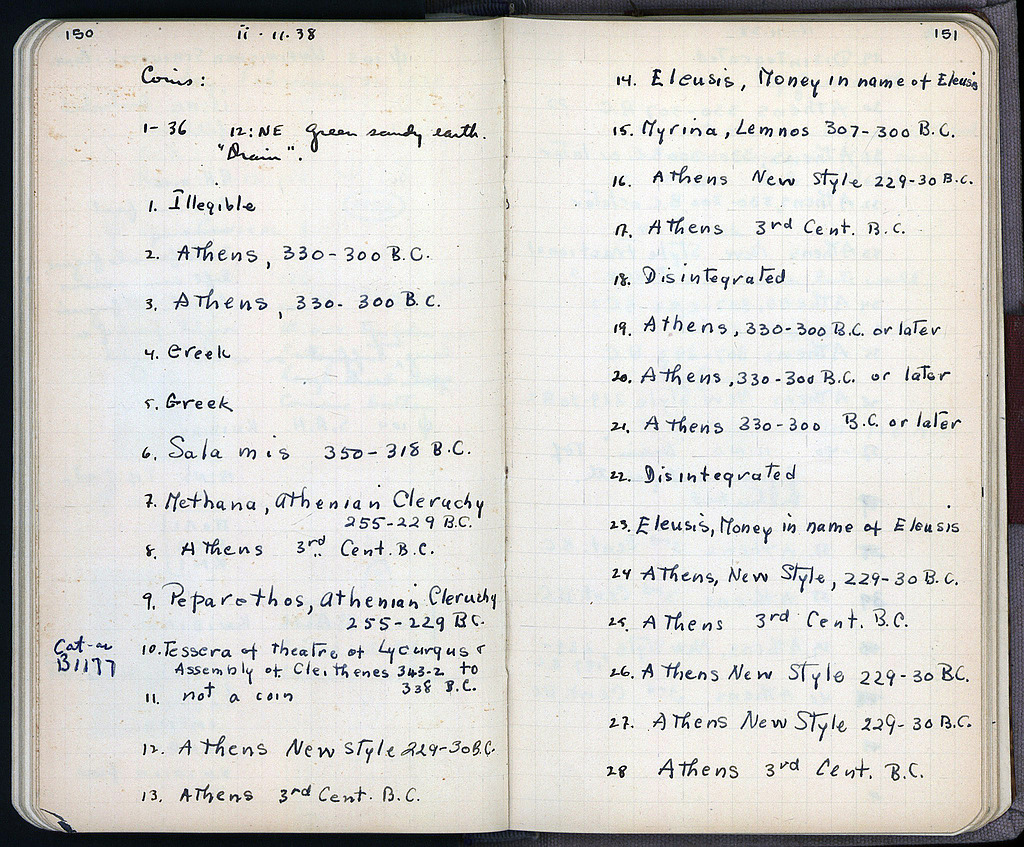 150
ii - 11.38
Coins:
1-36 12:NE green sandy earth.
"Drain".
1. Illegible
2. Athens, 330-300 B.C.
3. Athens, 330-300 B.C.
4. Greek
5. Greek
6. Salamis 350-318 B.C.
7. Methana, Athenian Cleruchy
255-229 B.C.
8. Athens 3rd Cent. B.C.
9. Peparethos, Athenian Cleruchy
255-229 B.C.
Cat-
B1177
10. Tessera of theatre of Lycurgus &
Assembly of Cleithenes 343-2 to
338 B.C.
11. not a coin
12. Athens New Style 229-30 B.C.
13. Athens 3rd Cent. B.C.
151
14. Eleusis, Money in name of Eleusis
15. Myrina, Lemnos 307-300 B.C.
16. Athens New Style 229-30 B.C.
17. Athens 3rd Cent. B.C.
18. Disintegrated
19. Athens, 330-300 B.C. or later
20. Athens, 330-300 B.C. or later
21. Athens 330-300 B.C. or later
22. Disintegrated
23. Eleusis, Money in name of Eleusis
24 Athens, New Style, 229-30 B.C.
25. Athens 3rd Cent. B.C.
26. Athens New Style 229-30 BC.
27. Athens New Style 229-30 B.C.
28 Athens 3rd Cent. B.C.